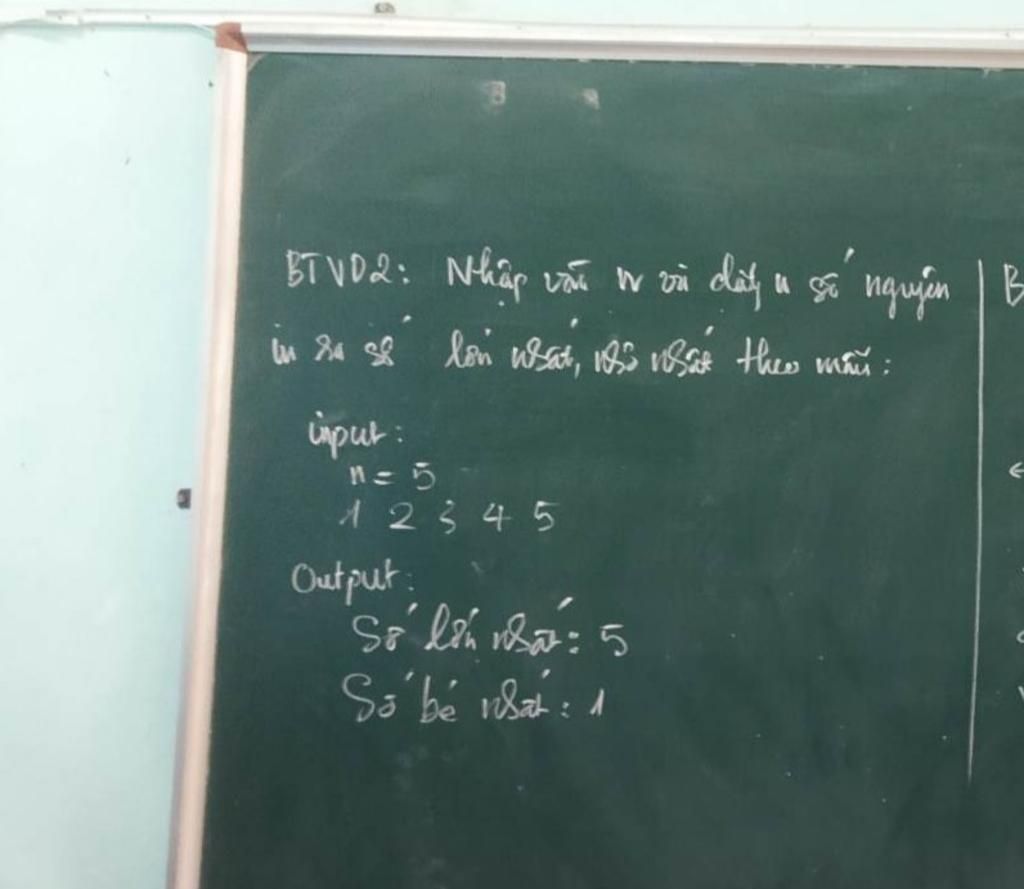 BTVD2: Nhập vào n và dãy n số nguyên
in ra số lớn nhất, nhỏ nhất theo mẫu:
input:
n = 5
1 2 3 4 5
Output:
Số lớn nhất: 5
Số bé nhất: 1
B